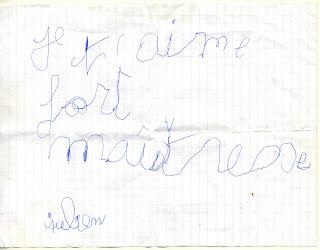 je t'aime
fort
maîtresse
julien